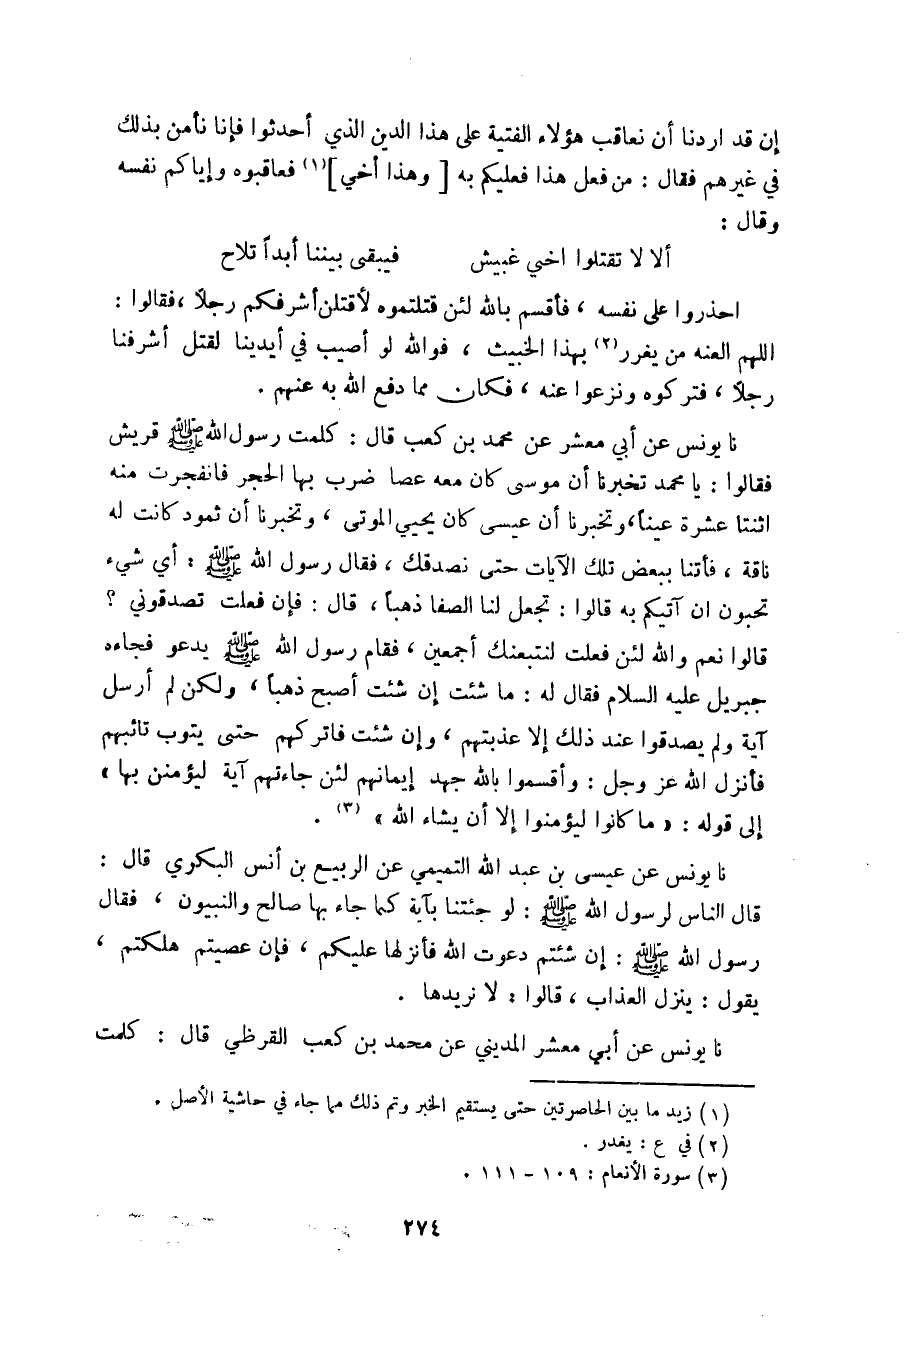 إن قد اردنا أن نعاقب هؤلاء الفتية على هذا الدين الذي أحدثوا فإنا نأمن بذلك
في غيرهم فقال : من فعل هذا فعليكم به [ وهذا أخي ](١) فعاقبوه وإياكم نفسه
وقال :
ألا لا تقتلوا اخي غبيش فيبقى بيننا أبداً تلاح
احذروا على نفسه ، فأقسم بالله لئن قتلتموه لأقتلن أشرفكم رجلاً ، فقالوا :
اللهم العنه من يغرر(٢) بهذا الخبيث ، فوالله لو أصيب في أيدينا لقتل أشرفنا
رجلاً ، فتركوه ونزعوا عنه ، فكان مما دفع الله به عنهم .
نا يونس عن أبي معشر عن محمد بن كعب قال : كلمت رسول الله ﷺ قريش
فقالوا : يا محمد تخبرنا أن موسى كان معه عصا ضرب بها الحجر فانفجرت منه
اثنتا عشرة عيناً ، وتخبرنا أن عيسى كان يحيي الموتى ، وتخبرنا أن ثمود كانت له
ناقة ، فأتنا ببعض تلك الآيات حتى نصدقك ، فقال رسول الله ﷺ : أي شيء
تحبون ان آتيكم به قالوا : تجعل لنا الصفا ذهباً ، قال : فإن فعلت تصدقوني ؟
قالوا نعم والله لئن فعلت لنتبعنك أجمعين ، فقام رسول الله ﷺ يدعو فجاءه
جبريل عليه السلام فقال له : ما شئت إن شئت أصبح ذهباً ، ولكن لم أرسل
آية ولم يصدقوا عند ذلك إلا عذبتهم ، وإن شئت فاتركهم حتى يتوب تائبهم
فأنزل الله عز وجل : وأقسموا بالله جهد إيمانهم لئن جاءتهم آية ليؤمنن بها »
إلى قوله : « ما كانوا ليؤمنوا إلا أن يشاء الله » (٣) .
نا يونس عن عيسى بن عبد الله التميمي عن الربيع بن أنس البكوي قال :
قال الناس لرسول الله ﷺ : لو جئتنا بآية كما جاء بها صالح والنبيون ، فقال
رسول الله ﷺ : إن شئتم دعوت الله فأنزلها عليكم ، فإن عصيتم هلكتم ،
يقول : ينزل العذاب ، قالوا : لا نريدها .
نا يونس عن أبي معشر المديني عن محمد بن كعب القرظي قال : كلمت
(١) زيد ما بين الحاصرتين حتى يستقيم الخبر وتم ذلك مما جاء في حاشية الأصل .
(٢) في ع : يغدر .
(٣) سورة الأنعام : ١٠٩ – ١١١ .
٢٧٤